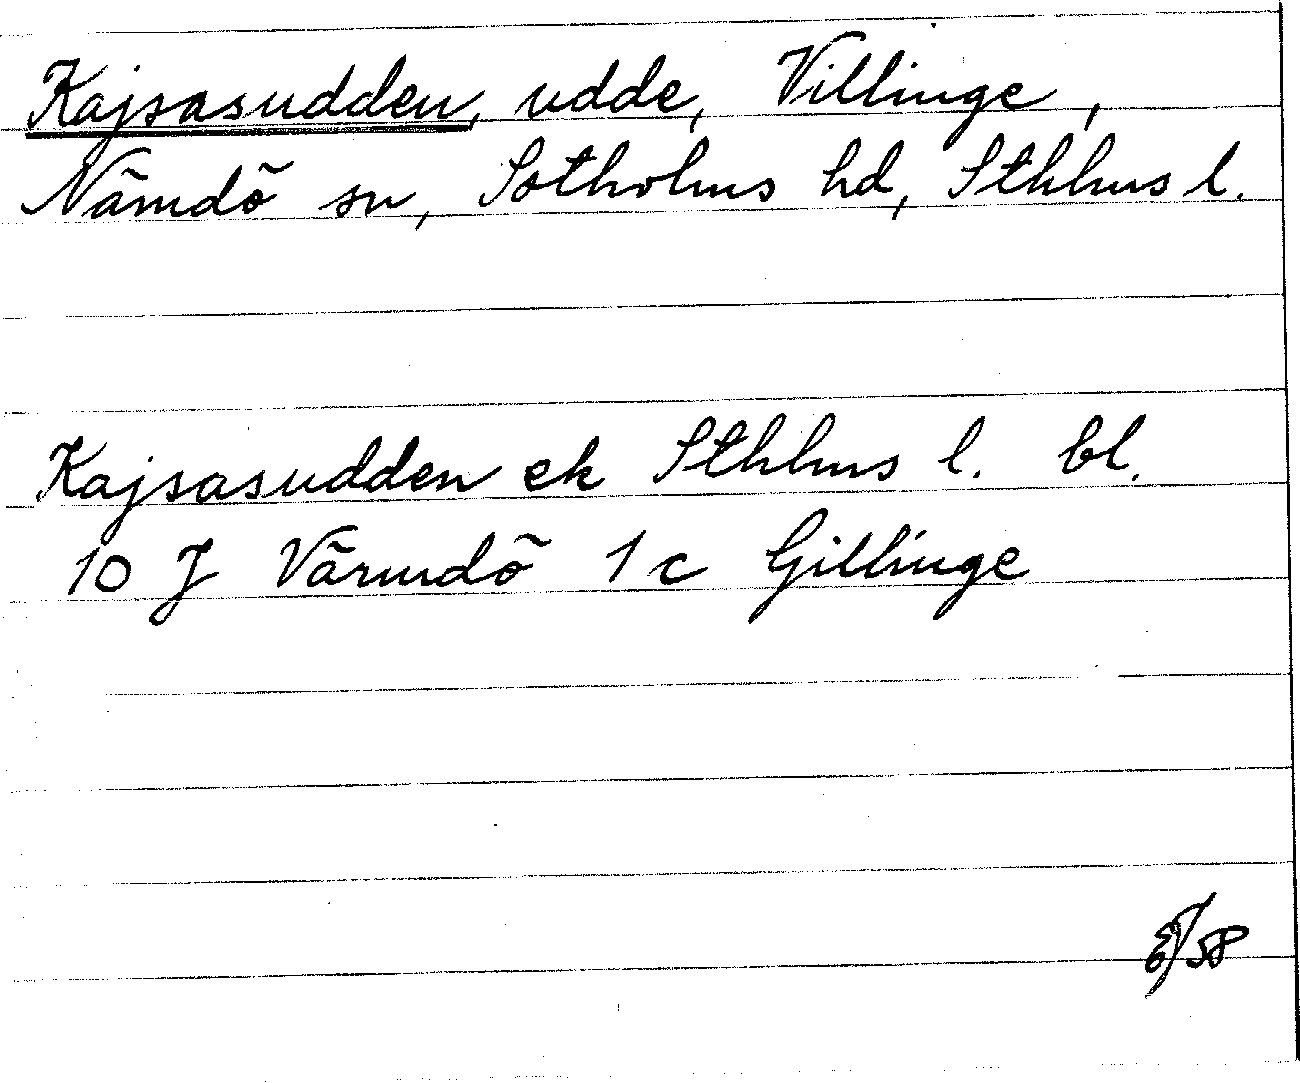 Kajsasudden, udde, Villinge,
Nämdö sn, Sotholms hd, Sthlms l.
Kajsasudden ek Sthlms l. bl.
10 J Värmdö 1 c Gillinge
/58